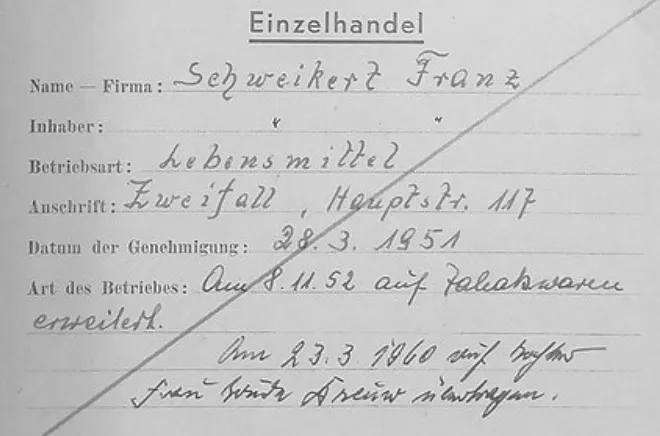 Einzelhandel
Name — Firma: Schweikert Franz
Inhaber: " "
Betriebsart: Lebensmittel
Anschrift: Zweifall, Hauptstr. 117
Datum der Genehmigung: 28.3.1951
Art des Betriebes: Am 8.11.52 auf Tabakwaren
erweitert.
Am 23.3.1960 auf Tochter
Frau übertragen.